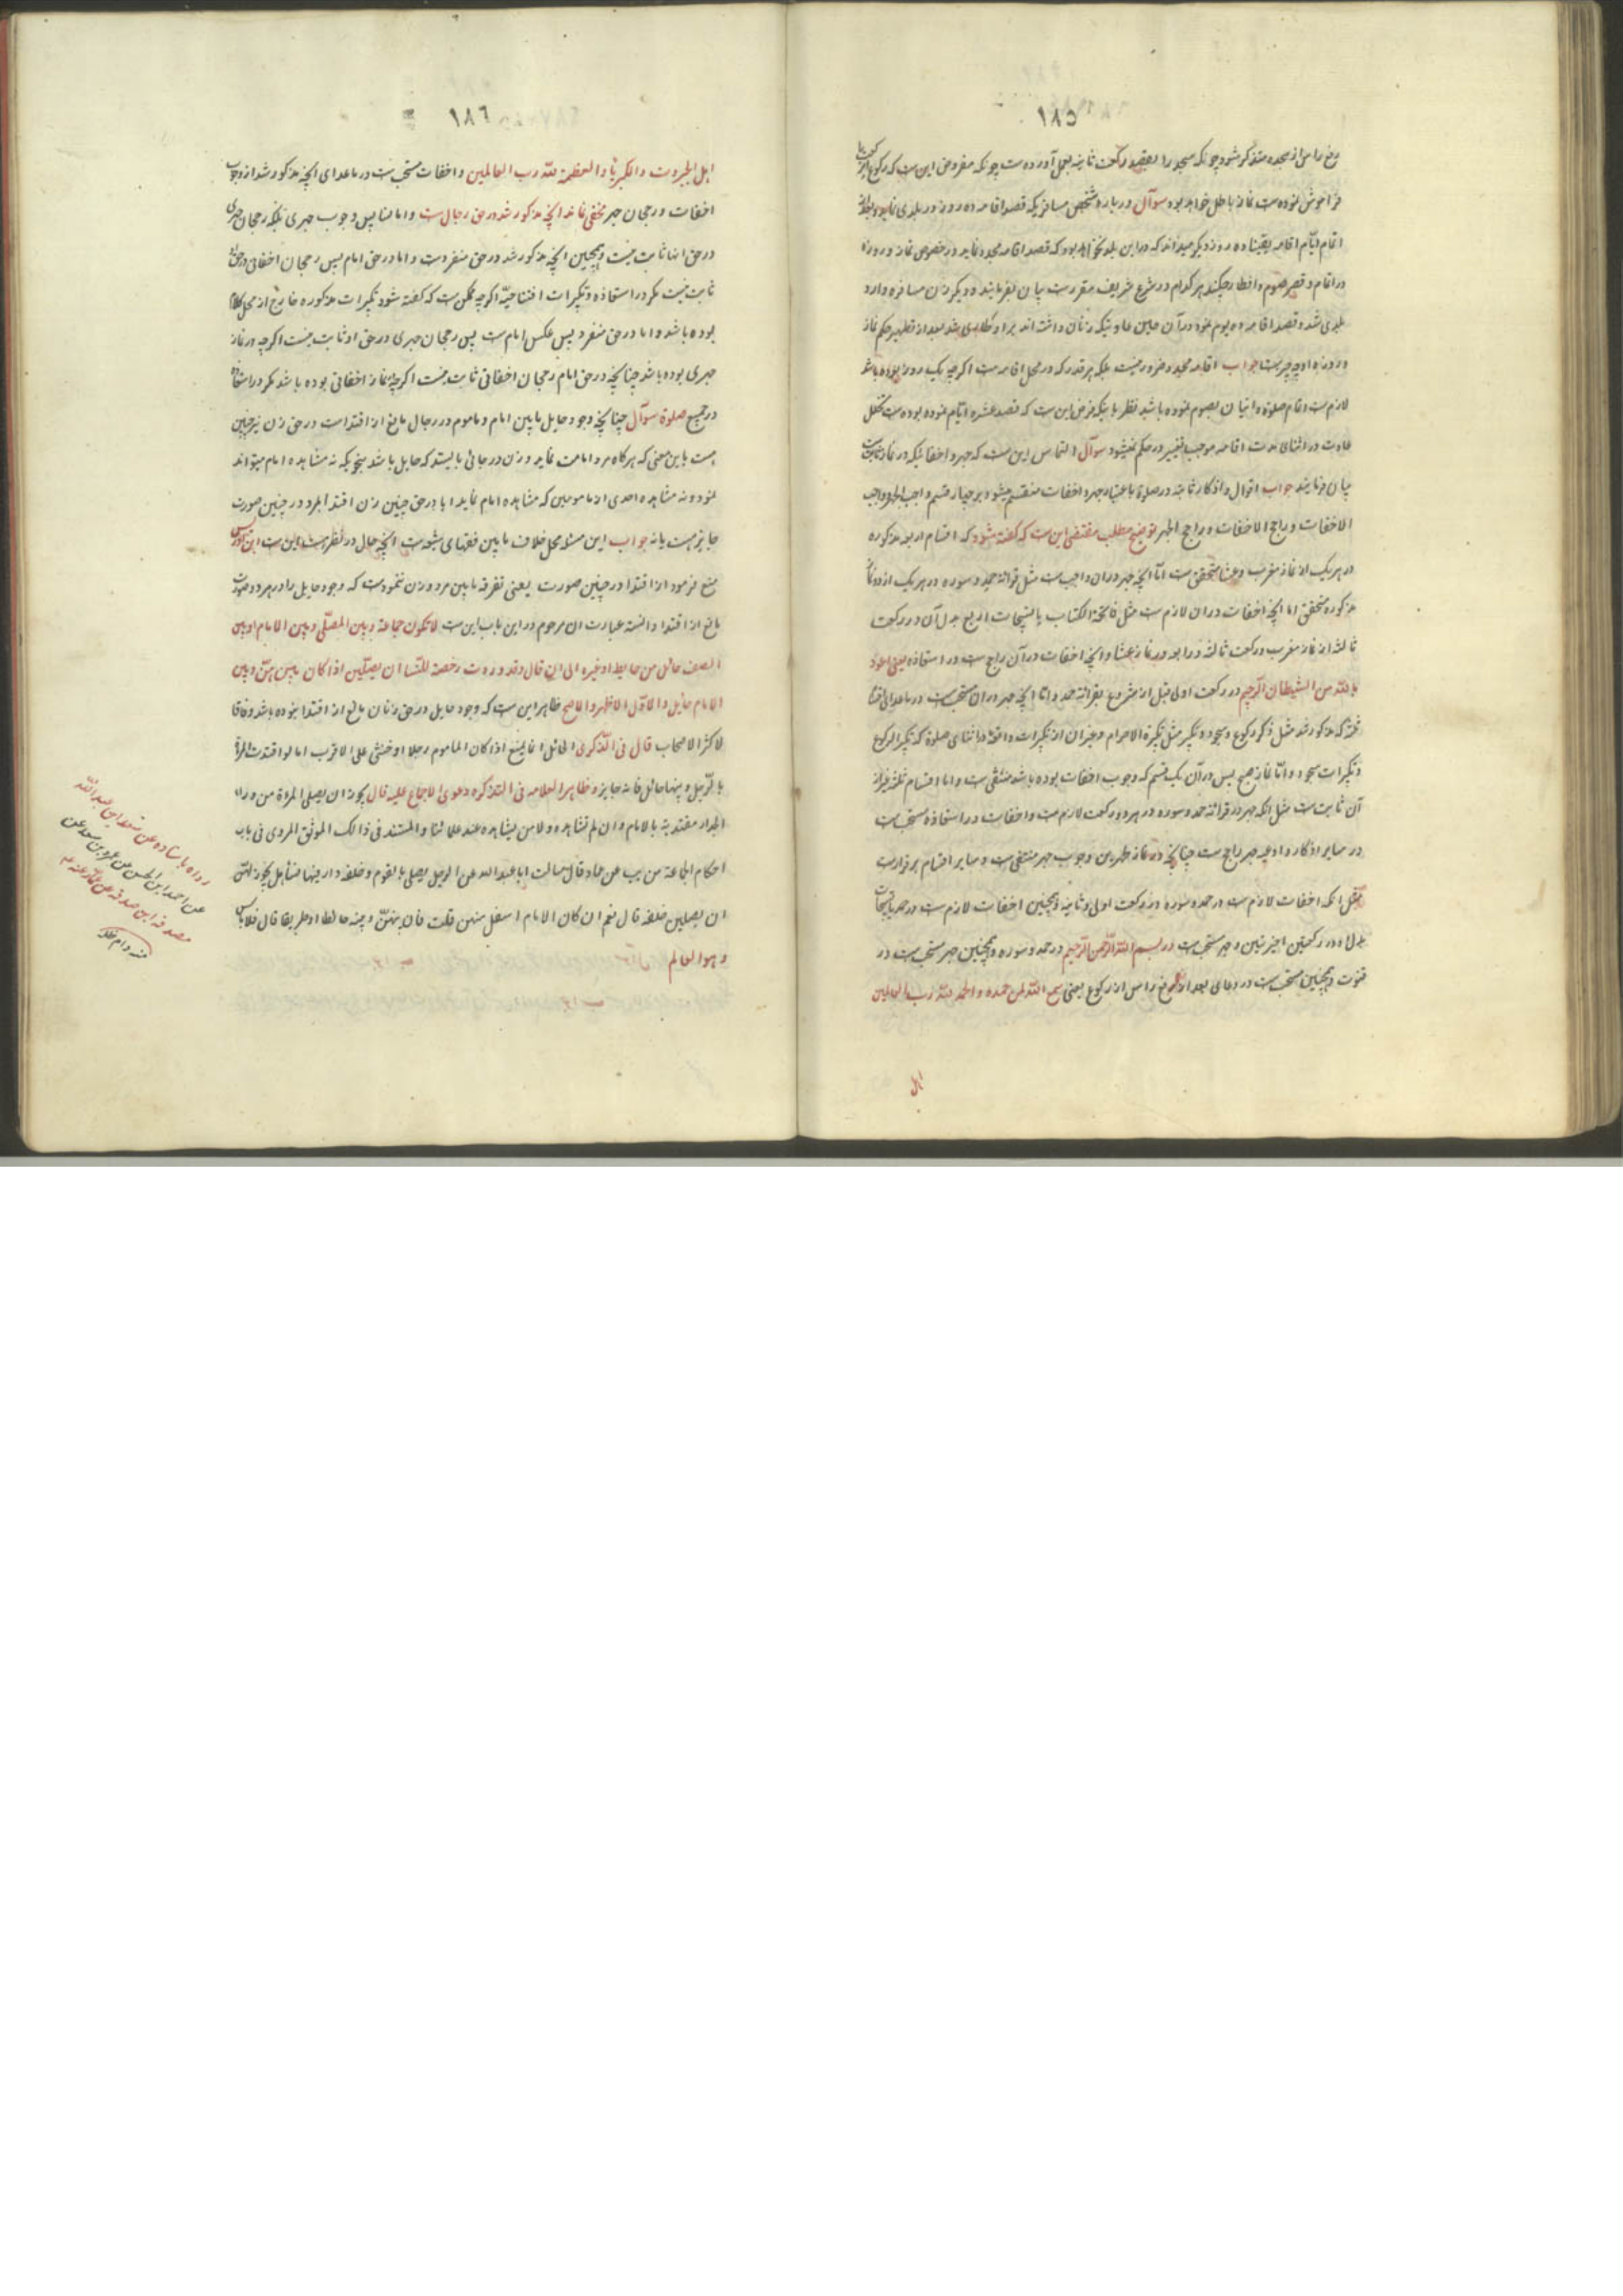 ١٨٥
رفع راس از سجده متذکر شود چونکه سجود را بقصد رکعت ثانیه بعمل آورده ست چونکه مفروض این ست که رکوع
فراموش نموده ست نماز باطل خواهد بود سوآل در باره شخص مسافریکه قصد اقامه ده روز در بلدی نماید و بعد از
اتمام ایّام اقامه یقینا ده روز دیگر میداند که در این بلد نخواهد بود که قصد اقامه مجدد نماید در خصوص نماز و روزه
در اتمام و قصر صوم و افطار چکند هر کدام در شرع شریف مقرر ست بیان بفرمایند و دیگر زن مسافره وارد
بلدی شد و قصد اقامه ده یوم نمود در آن حین عادتیکه زنان داشته اند بر او طاری شد بعد از تطهیر حکم نماز
و روزه او چه چیز ست جواب اقامه مجدد ضرور نیست بلکه هر قدر که در محل اقامه ست اگرچه یک روز بوده باشد
لازم ست اتمام صلوة و اتیان بصوم نموده باشد نظر باینکه فرض این ست که قصد عشره ایّام نموده بوده ست تخلل
عادت در اثنای مدت اقامه موجب تغییر در حکم نمیشود سوآل التماس این ست که جهر و اخفاتیکه در نماز ثابت ست
بیان فرمایند جواب اقوال و اذکار ثابته در صلوة باعتبار جهر و اخفات منقسم میشود بر چهار قسم واجب الجهر و واجب
الاخفات و راجح الاخفات و راجح الجهر توضیح مطلب مقتضی این ست که گفته شود که اقسام اربعه مذکوره
در هر یک از نماز مغرب و عشا متحقق ست امّا آنچه جهر در ان واجب ست مثل قرائة حمد و سوره در هر یک از دو نماز
مذکوره متحقق اما آنچه اخفات در ان لازم ست مثل فاتحة الکتاب یا تسبیحات اربع بدل آن در رکعت
ثالثه از نماز مغرب و رکعت ثالثه و رابعه در نماز عشا و آنچه اخفات در آن راجح ست در استعاذه یعنی اعوذ
بالله من الشیطان الرّجیم در رکعت اولی قبل از شروع بقرائة حمد و امّا آنچه جهر در ان مستحب ست در ماعدای
ثلثه که مذکور شد مثل ذکر رکوع و سجود و تکبیر مثل تکبیرة الاحرام و غیر ان از تکبیرات واقعه در اثنای صلوة که تکبیر الرکوع
و تکبیرات سجود و امّا نماز صبح پس در آن یک قسم که وجوب اخفات بوده باشد منتفی ست و اما اقسام ثلثه غیر از
آن ثابت ست مثل انکه جهر در قرائة حمد و سوره در هر دو رکعت لازم ست و اخفات در استعاذه مستحب ست
در سایر اذکار و ادعیه جهر راجح ست چنانچه در نماز ظهرین وجوب جهر منتفی ست و سایر اقسام برقرار ست
مثل انکه اخفات لازم ست در حمد و سوره در رکعت اولی و ثانیه و همچنین اخفات لازم ست در حمد یا تسبیحات
بدل او در رکعتین اخیرتین و جهر مستحب ست در بسم الله الرّحمن الرّحیم در حمد و سوره و همچنین جهر مستحب ست در
قنوت و همچنین مستحب ست در دعای بعد از رفع راس از رکوع یعنی سمع الله لمن حمده و الحمد لله رب العالمین
اهل
١٨٦
اهل الجبروت و الکبریاء و العظمة لله رب العالمین و اخفات مستحب ست در ماعدای آنچه مذکور شد از وجوب
اخفات و رجحان جهر مخفی نماند آنچه مذکور شد در حق رجال ست و اما نسا پس وجوب جهری بلکه رجحان جهری
در حق انها ثابت نیست و همچنین آنچه مذکور شد در حق منفرد ست و اما در حق امام پس رجحان اخفاتی در حق او
ثابت نیست مگر در استعاذه و تکبیرات افتتاحیّه اگرچه ممکن ست که گفته شود تکبیرات مذکوره خارج از محل کلام
بوده باشد و اما در حق منفرد پس عکس امام ست پس رجحان جهری در حق او ثابت نیست اگرچه در نماز
جهری بوده باشد چنانچه در حق امام رجحان اخفاتی ثابت نیست اگرچه نماز اخفاتی بوده باشد مگر در استعاذه
در جمیع صلوة سوآل چنانچه وجود حایل مابین امام و ماموم در رجال مانع از اقتدا ست در حق زن نیز چنین
هست باین معنی که هرگاه مرد امامت نماید و زن در جائی بایستد که حایل باشد بنحویکه نه مشاهده امام میتواند
نمود و نه مشاهده احدی از مامومین که مشاهده امام نماید ایا در حق چنین زن اقتدا بمرد در چنین صورت
جایز هست یا نه جواب این مسئله محل خلاف مابین فقهای شیعه ست آنچه حال در نظر هست این ست ابن ادریس
منع فرموده از اقتدا در چنین صورت یعنی تفرقه مابین مرد و زن ننموده ست که وجود حایل را در هر دو صورت
مانع از اقتدا دانسته عبارت ان مرحوم در این باب این ست لا تکون جماعة و بین المصلّی و بین الامام او بین
الصف حائل من حایط او غیره الی ان قال و قد وردت رخصة للنّسا ان یصلّین اذا کان بینهنّ و بین
الامام حائل و الاوّل الاظهر و الاصح ظاهر این ست که وجود حایل در حق زنان مانع از اقتدا نبوده باشد وفاقا
لاکثر الاصحاب قال فی الذّکری الحائل انما یمنع اذا کان الماموم رجلا او خنثی علی الاقرب اما لو اقتدت المرأة
بالرّجل و بینهما حائل فانه جایز و ظاهر العلامه فی التذکره دعوی الاجماع علیه قال یجوز ان یصلی المرءة من وراء
الجدار مقتدیة بالامام و ان لم تشاهده و لا من یشاهده عند علمائنا و المستند فی ذالک الموثق المروی فی باب
احکام الجماعة من یب عن عماد قال سالت ابا عبد الله عن الرجل یصلی بالقوم و خلفه دار فیها نسا هل یجوز لهنّ
ان یصلین خلفه قال نعم ان کان الامام اسفل منهن قلت فان بینهنّ و بینه حائطا او طریقا قال فلا باس
و هو العالم
رواه باسناده عن سعد ابن عبد الله
عن احمد ابن الحسن عن عمرو بن سعید عن
مصدق ابن صدقه عن عمّار
منه دام ظله